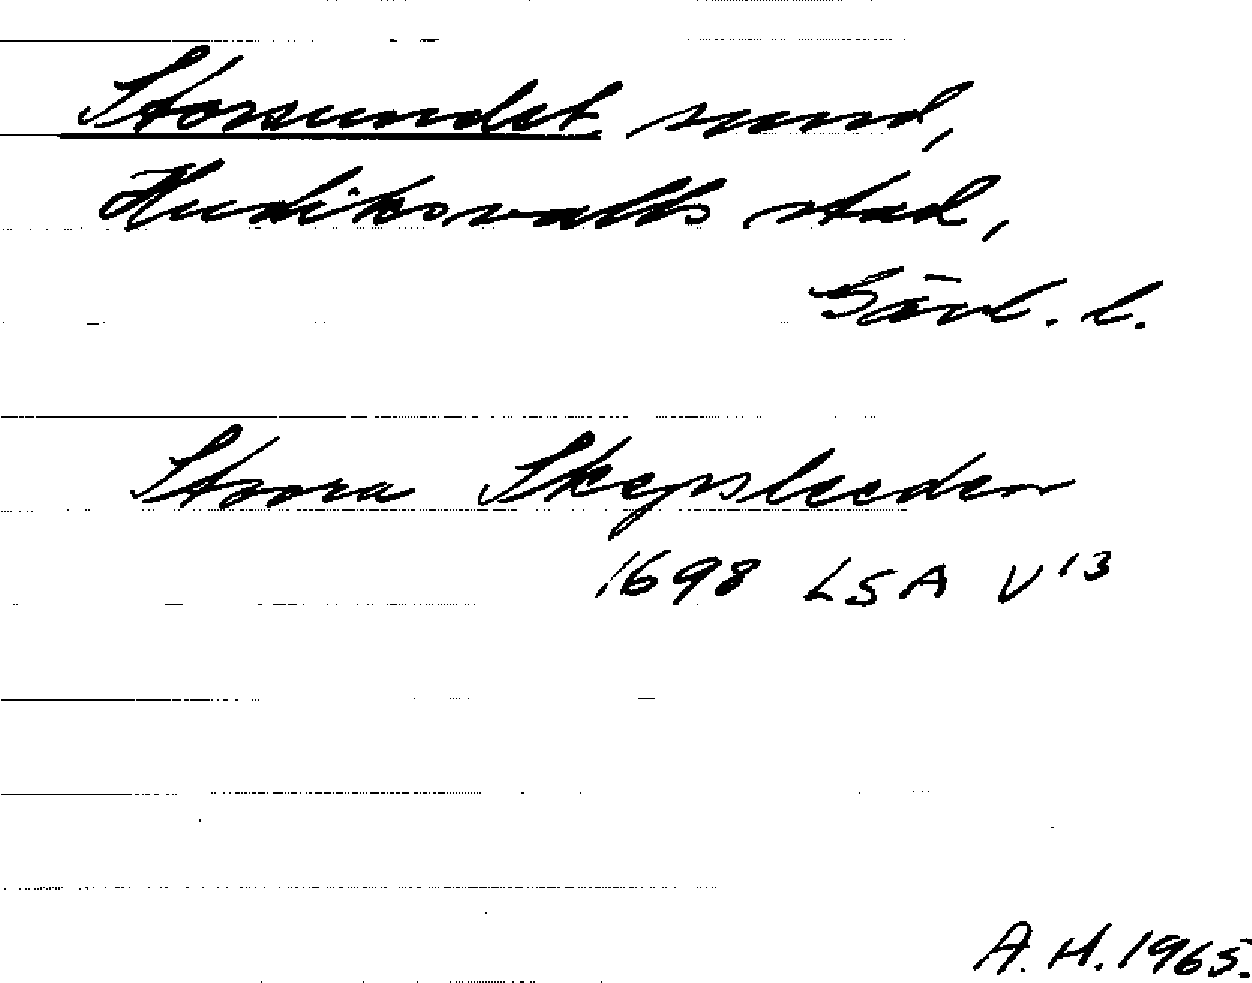 Storsundet sund,
Hudiksvalls stad,
Gävl. l.
Stoora Skepsleeden
1698 LSA V13
A. H. 1965.